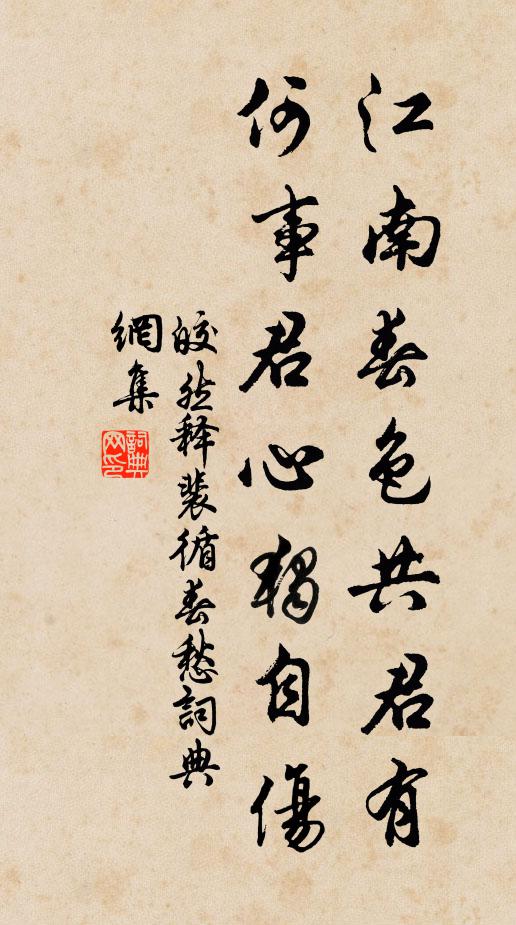 江南春色共君有
何事君心獨自傷
皎然释裴循春愁詞典
網集
詞典网印